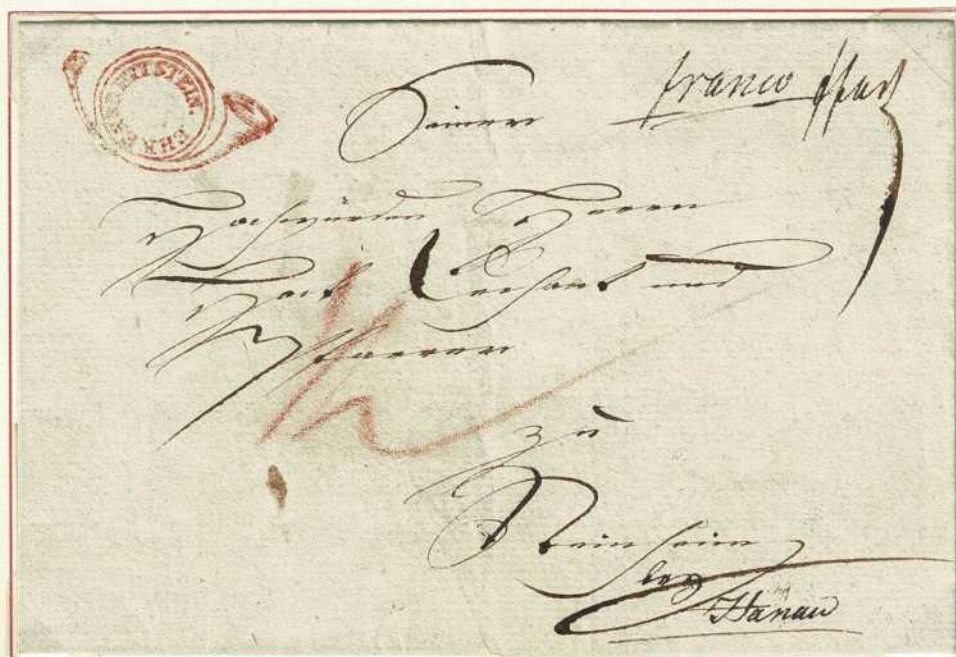 EHRENBREITSTEIN.
franco
Seiner
Hochwürden Herrn
Dechant und
Pfarrer
zu
Steinheim
bey
Hanau